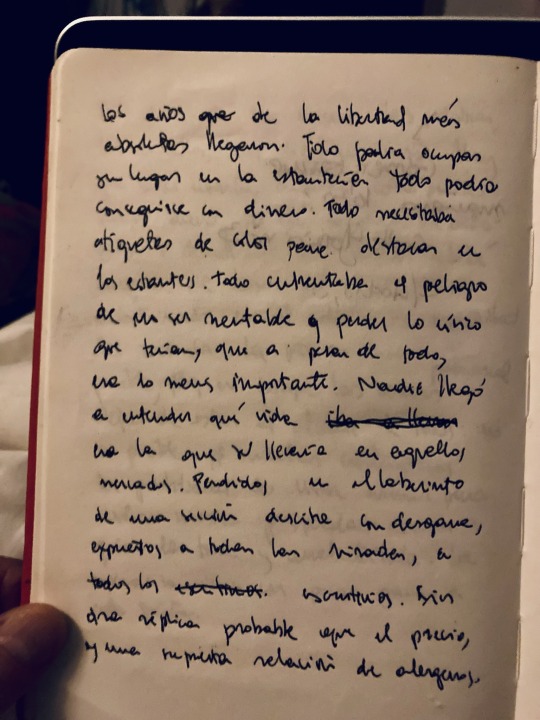 los años de la libertad más
absolutas llegaron. Todo podía ocupar
su lugar en la estantería todo podía
conseguirse con dinero. Todo necesitaba
etiquetas de color para destacar en
los estantes. Todo enfrentaba el peligro
de no ser rentable y perder lo único
que tenían, que a pesar de todo,
era lo menos importante. Nadie llegó
a entender qué vida
era la que se llevaría en aquellos
mercados. Perdidos en el laberinto
de una sección descrita con desgana,
expuestos a todas las miradas, a
todos los escrutinios. Sin
otra réplica probable que el precio,
y una supuesta relación de alérgenos.